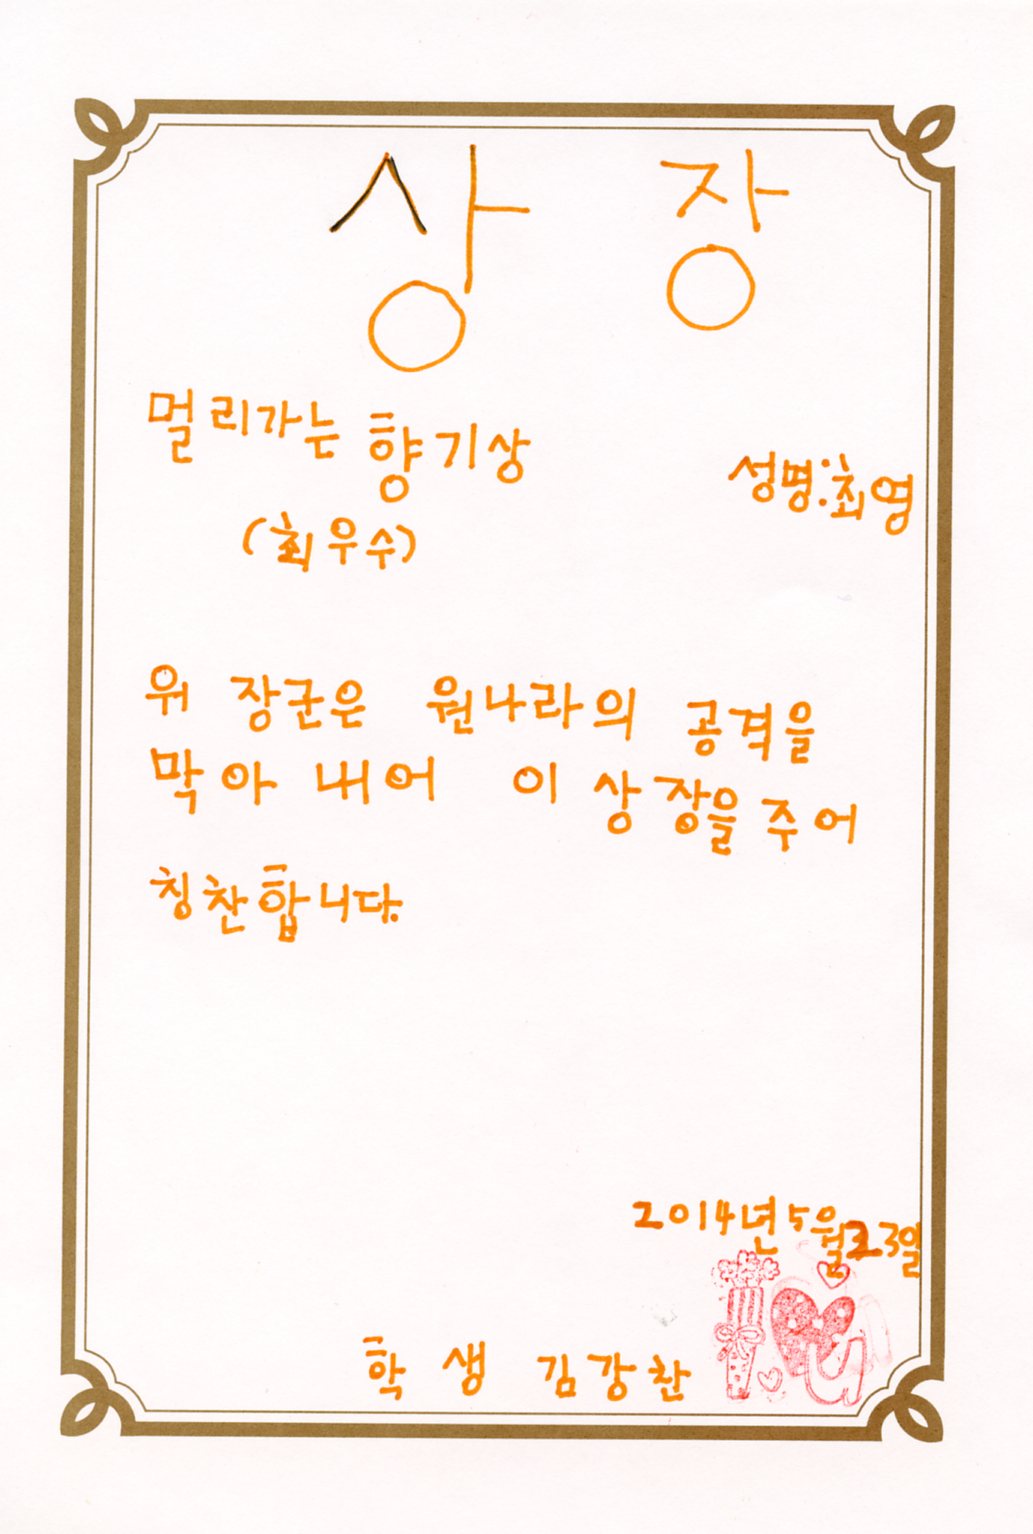 상 장
멀리가는 향기상
성명:최영
(최우수)
위 장군은 원나라의 공격을
막아 내어 이 상장을 주어
칭찬합니다.
2014년 5월 23일
학생 김강찬